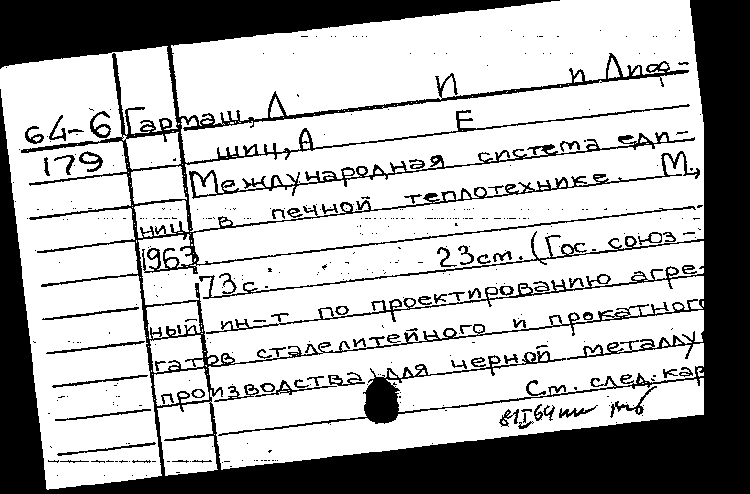 64-6 Гарташ, Л И и Лиф-
179 шиц, А Е
Международная система еди-
ниц в печной теплотехнике. М.,
1963.
73с. 23см. (Гос. союз-
ный ин-т по проектированию агре-
гатов сталелитейного и прокатного
производства для черной металлу
См. след. кар